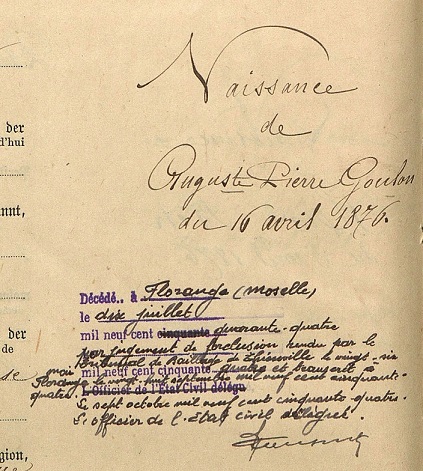 Naissance
de
Auguste Pierre Goulon
du 16 avril 1876.
der
d'hui
annt,
der
de
se
gion,
Décédé.. à Florange (Moselle)
le dix juillet
mil neuf cent cinquante quarante-quatre
par jugement de forclusion rendu par le
Tribunal de Bailliage de Thionville le vingt-six
mai mil neuf cent cinquante-quatre et transcrit à
Florange le vingt huit septembre mil neuf cent cinquante-
quatre. L'Officier de l'Etat Civil délégu
Le sept octobre mil neuf cent cinquante-quatre.
L'officier de l'Etat civil délégué.